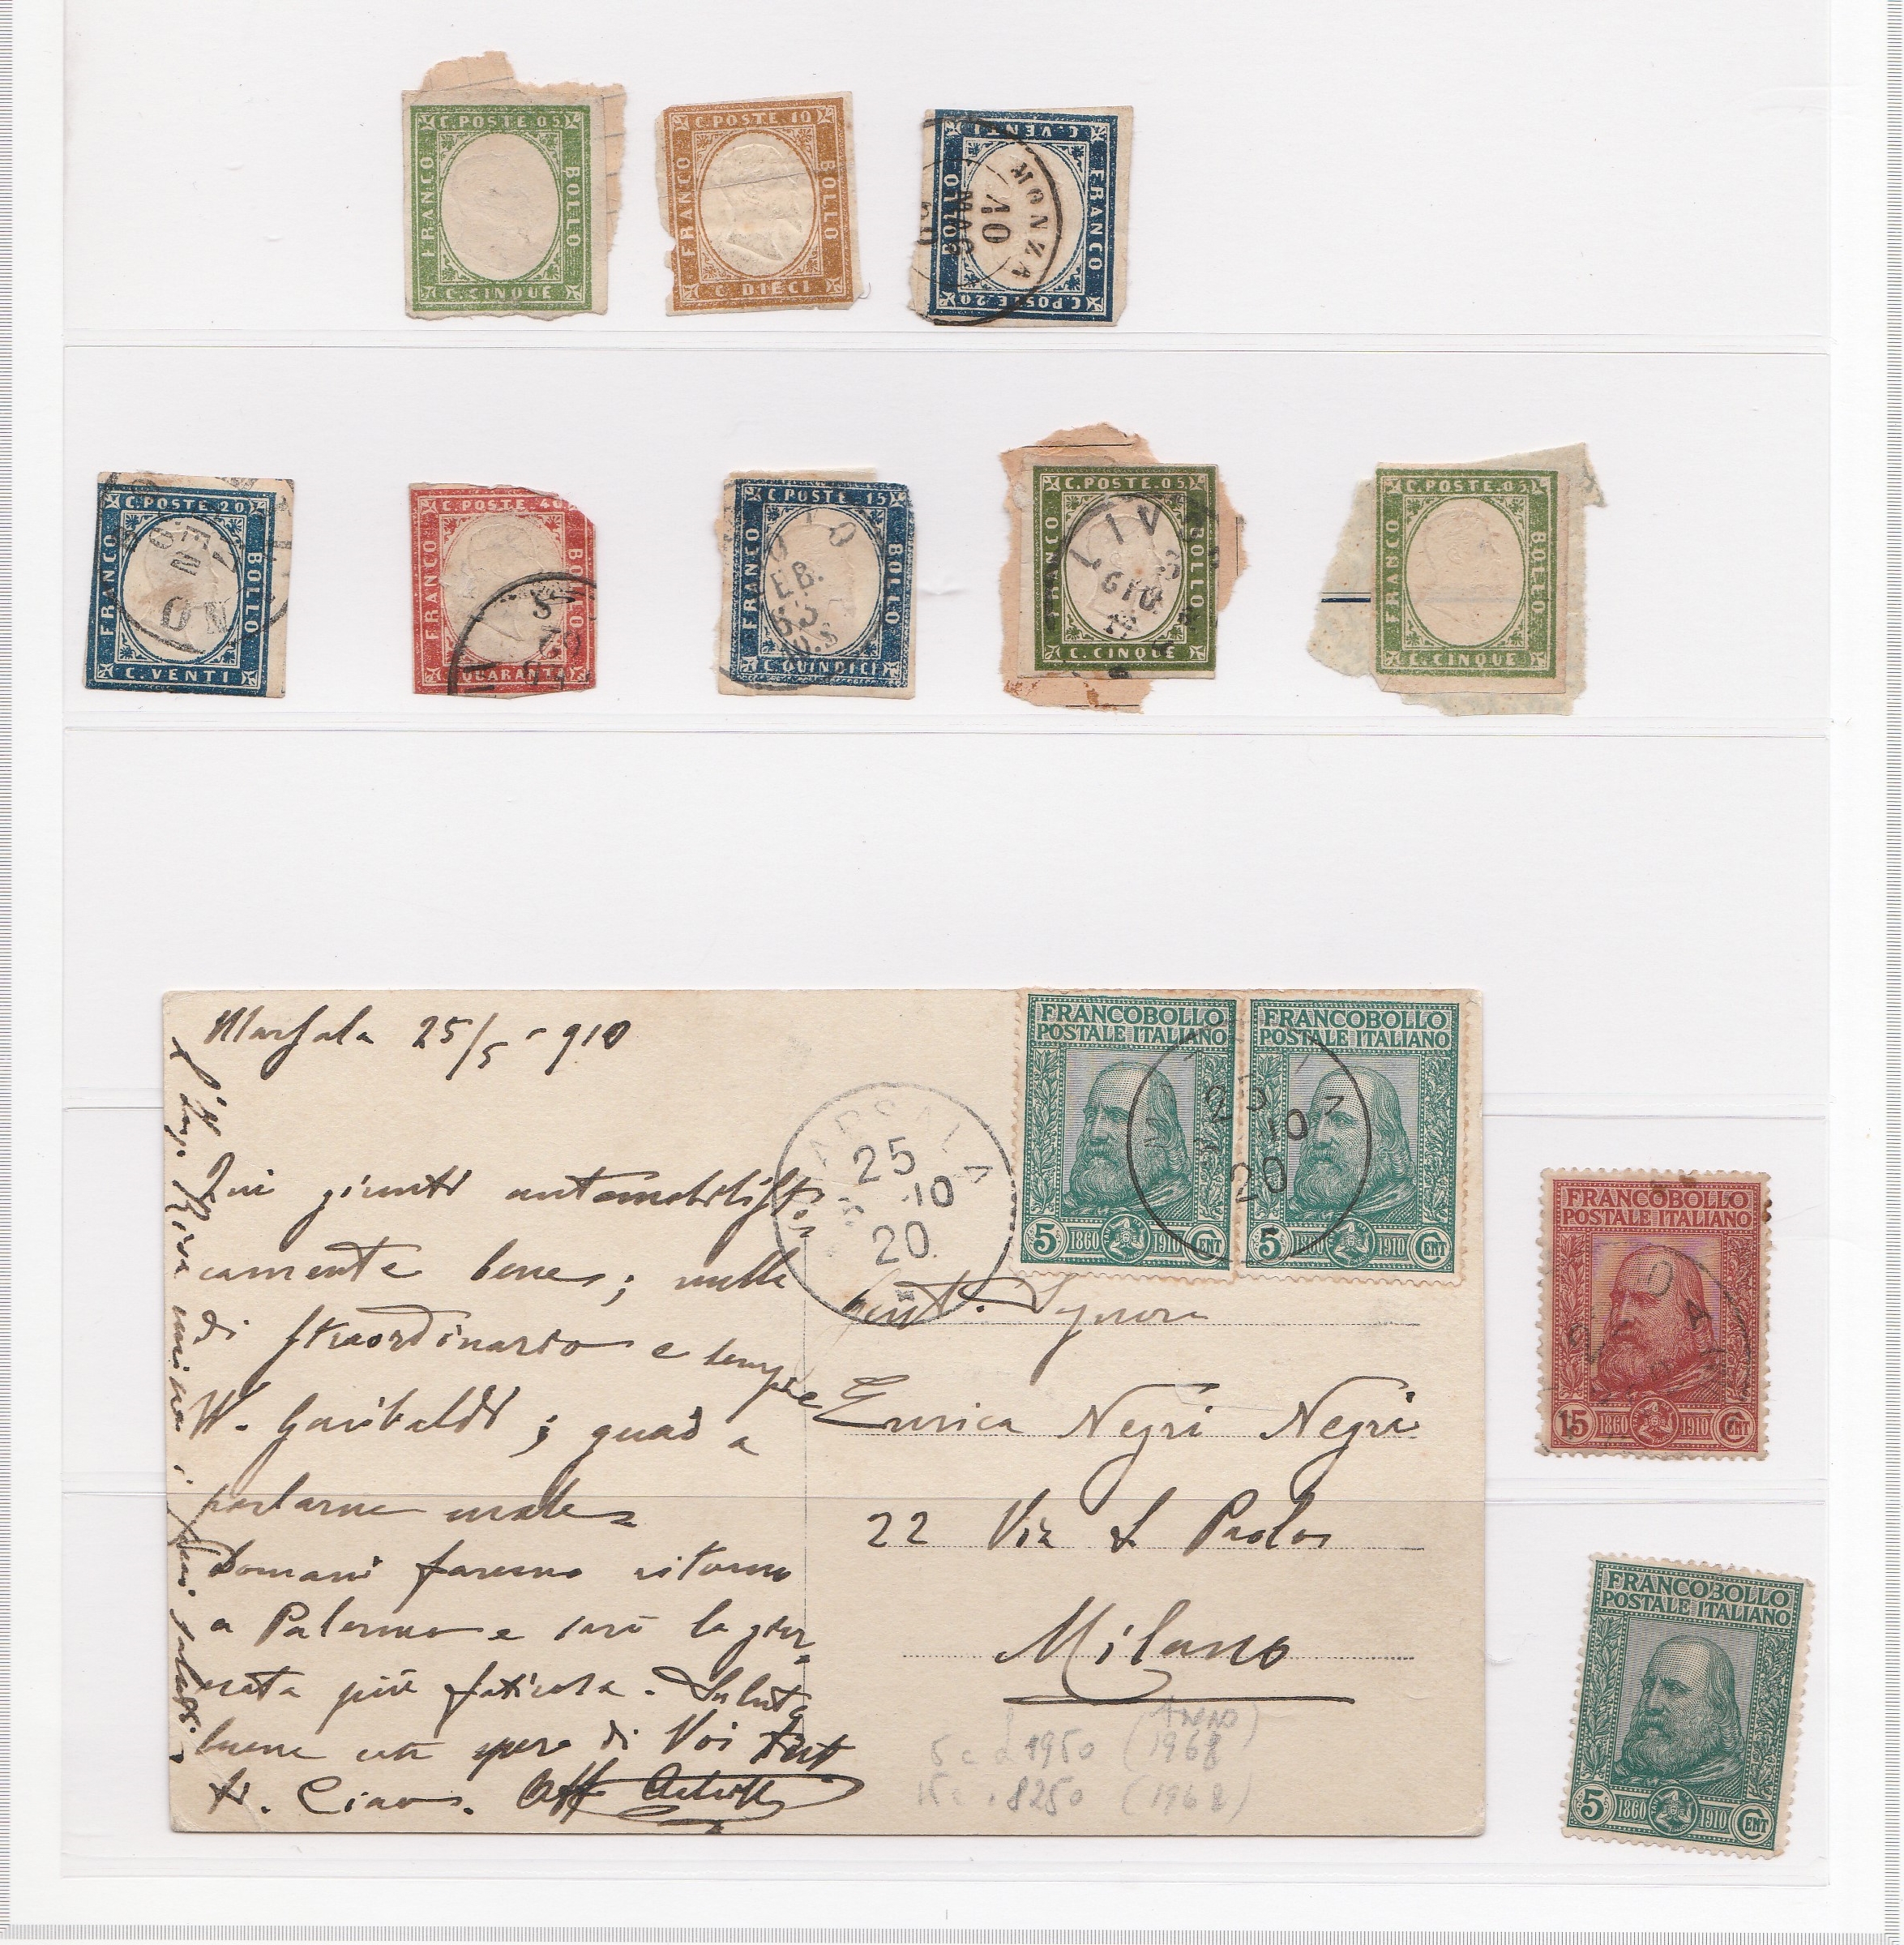 C. POSTE 05
FRANCO
BOLLO
C. CINQUE
C. POSTE 10
FRANCO
BOLLO
C. DIECI
C. POSTE 20
FRANCO
BOLLO
C. VENTI
MONZA
10
MAG
C. POSTE 20
FRANCO
BOLLO
C. VENTI
C. POSTE 40
FRANCO
BOLLO
QUARANTA
C. POSTE 15
FRANCO
BOLLO
C. QUINDICI
EB.
63
C. POSTE 05
FRANCO
BOLLO
C. CINQUE
LIV
GIU.
C. POSTE 05
FRANCO
BOLLO
C. CINQUE
Marsala 25/5 - 910
Qui giunti automobilisti
camente bene; nulla
di straordinario e sempre
W. Garibaldi; guai a
parlarne male
Domani faremo ritorno
a Palermo e sarà la gior
nata più faticosa. Saluta
di Voi tut
ti. Ciao. Aff
MARSALA
25
5 10
20
FRANCOBOLLO
POSTALE ITALIANO
5 1860 1910 CENT
FRANCOBOLLO
POSTALE ITALIANO
5 1860 1910 CENT
10
20
Gent. Signora
Enrica Negri Negri
22 Via S. Paolo
Milano
(ANNO
5 c £ 1950 (1968
15 c . 8250 (1968)
FRANCOBOLLO
POSTALE ITALIANO
15 1860 1910 CENT
FRANCOBOLLO
POSTALE ITALIANO
5 1860 1910 CENT